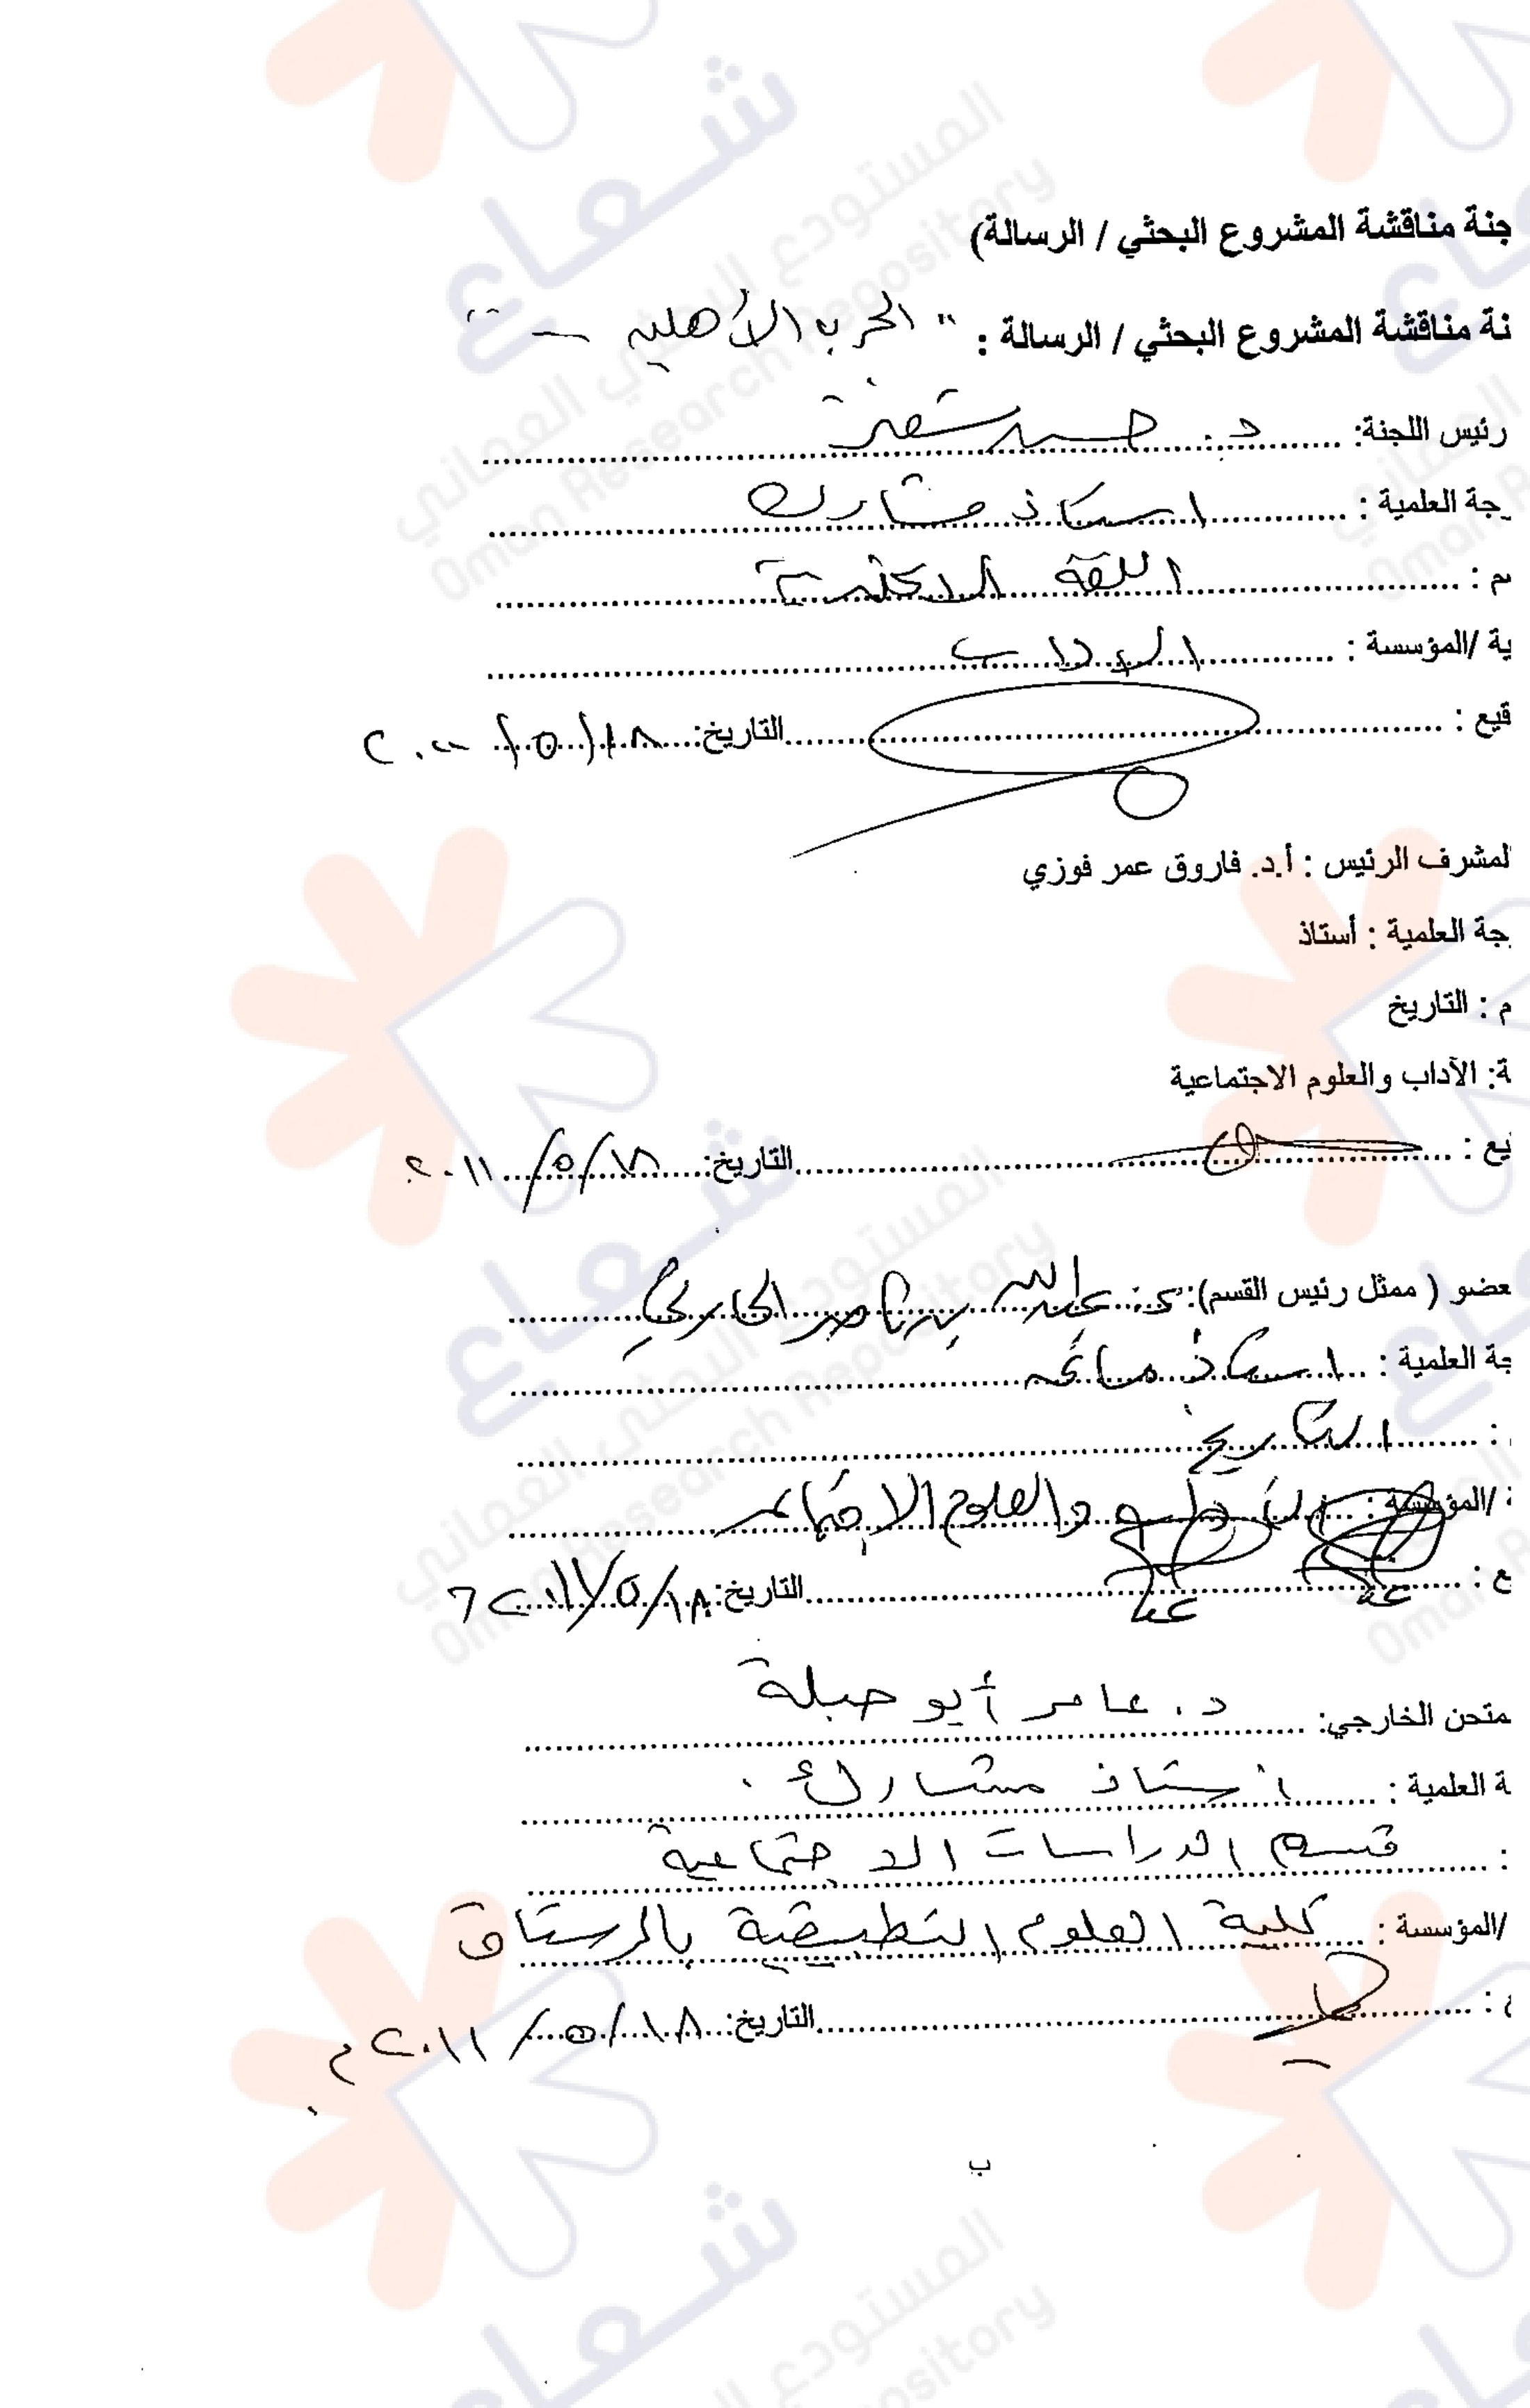 جنة مناقشة المشروع البحثي / الرسالة)
نة مناقشة المشروع البحثي / الرسالة : " الحرب الأهلية
رئيس اللجنة: د.
جة العلمية : استاذ مشارك
م : اللغة الانجليزية
ية /المؤسسة : الآداب
قيع : التاريخ: ١٨/٥/
لمشرف الرئيس : أ.د. فاروق عمر فوزي
جة العلمية : أستاذ
م : التاريخ
ة: الآداب والعلوم الاجتماعية
يع : التاريخ: ١٨/٥/٢٠١١
عضو ( ممثل رئيس القسم): د. عبدالله بن ناصر الحارثي
جة العلمية : استاذ مساعد
: التاريخ
/المؤسسة : والعلوم الاجتماعية
ع : التاريخ: ١٨/٥/٢٠١١
متحن الخارجي: د. عامر أبو جبلة
ة العلمية : أستاذ مشارك.
: قسم الدراسات الاجتماعية
/المؤسسة : كلية العلوم التطبيقية بالرستاق
ع : التاريخ: ١٨/٥/٢٠١١م
ب
شعاع
المستودع البحثي العماني
Oman Research Repository